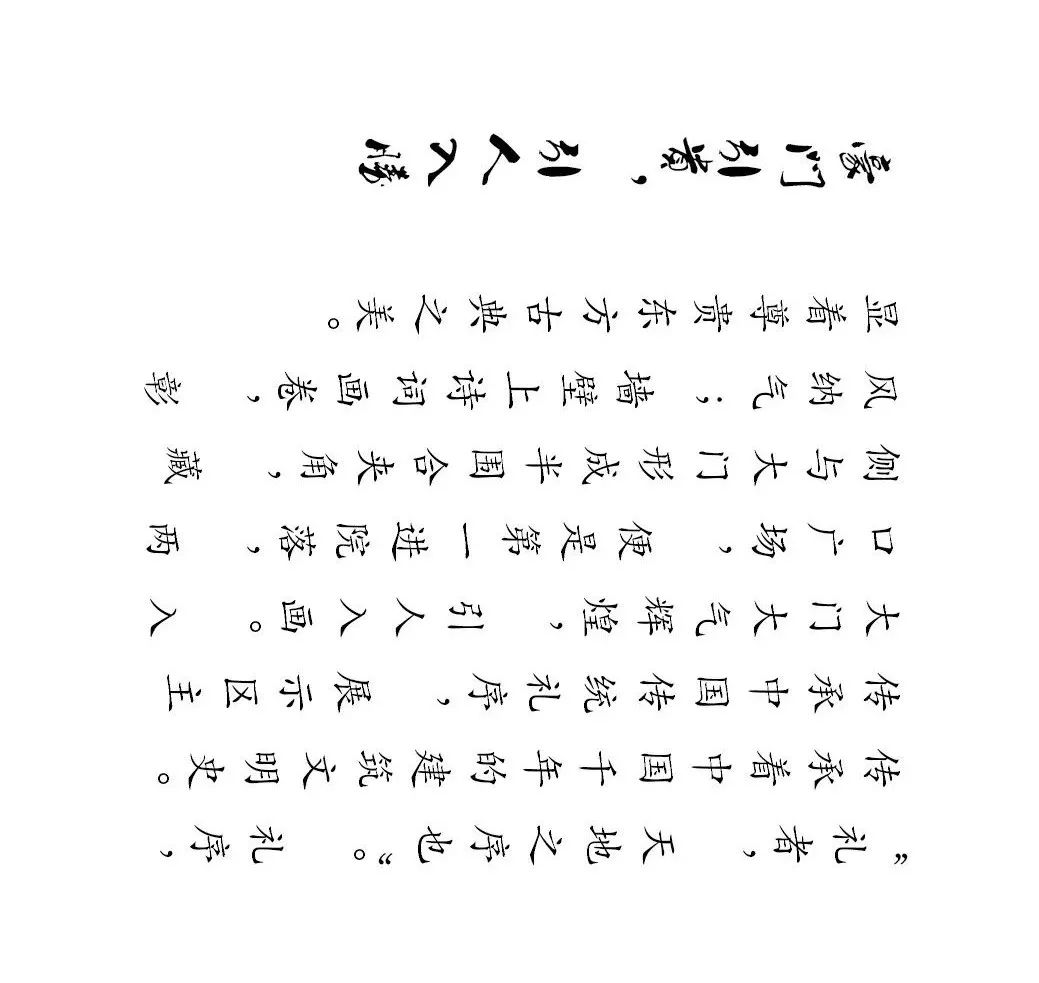 “礼者，天地之序也”。礼序，
传承着中国千年的建筑文明史。
传承中国传统礼序，展示区主
大门大气辉煌，引人入画。入
口广场，便是第一进院落，两
侧与大门形成半围合夹角，藏
风纳气；墙壁上诗词画卷，彰
显着尊贵东方古典之美。
豪门引貴，引人入勝